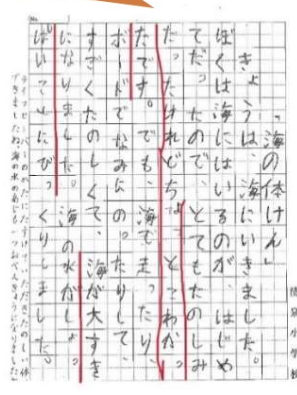 「海の体けん」
きょうは、海にいきました。
ぼくは海にはいるのが、はじめ
てだったので、とてもたのしみ
だったけれどちょっとこわかっ
たです。でも、海で走ったり、
ボードでなみにのったりして、
すごくたのしくて、海が大すき
になりました。海の水がしょっ
ぱいことにびっくりしました。